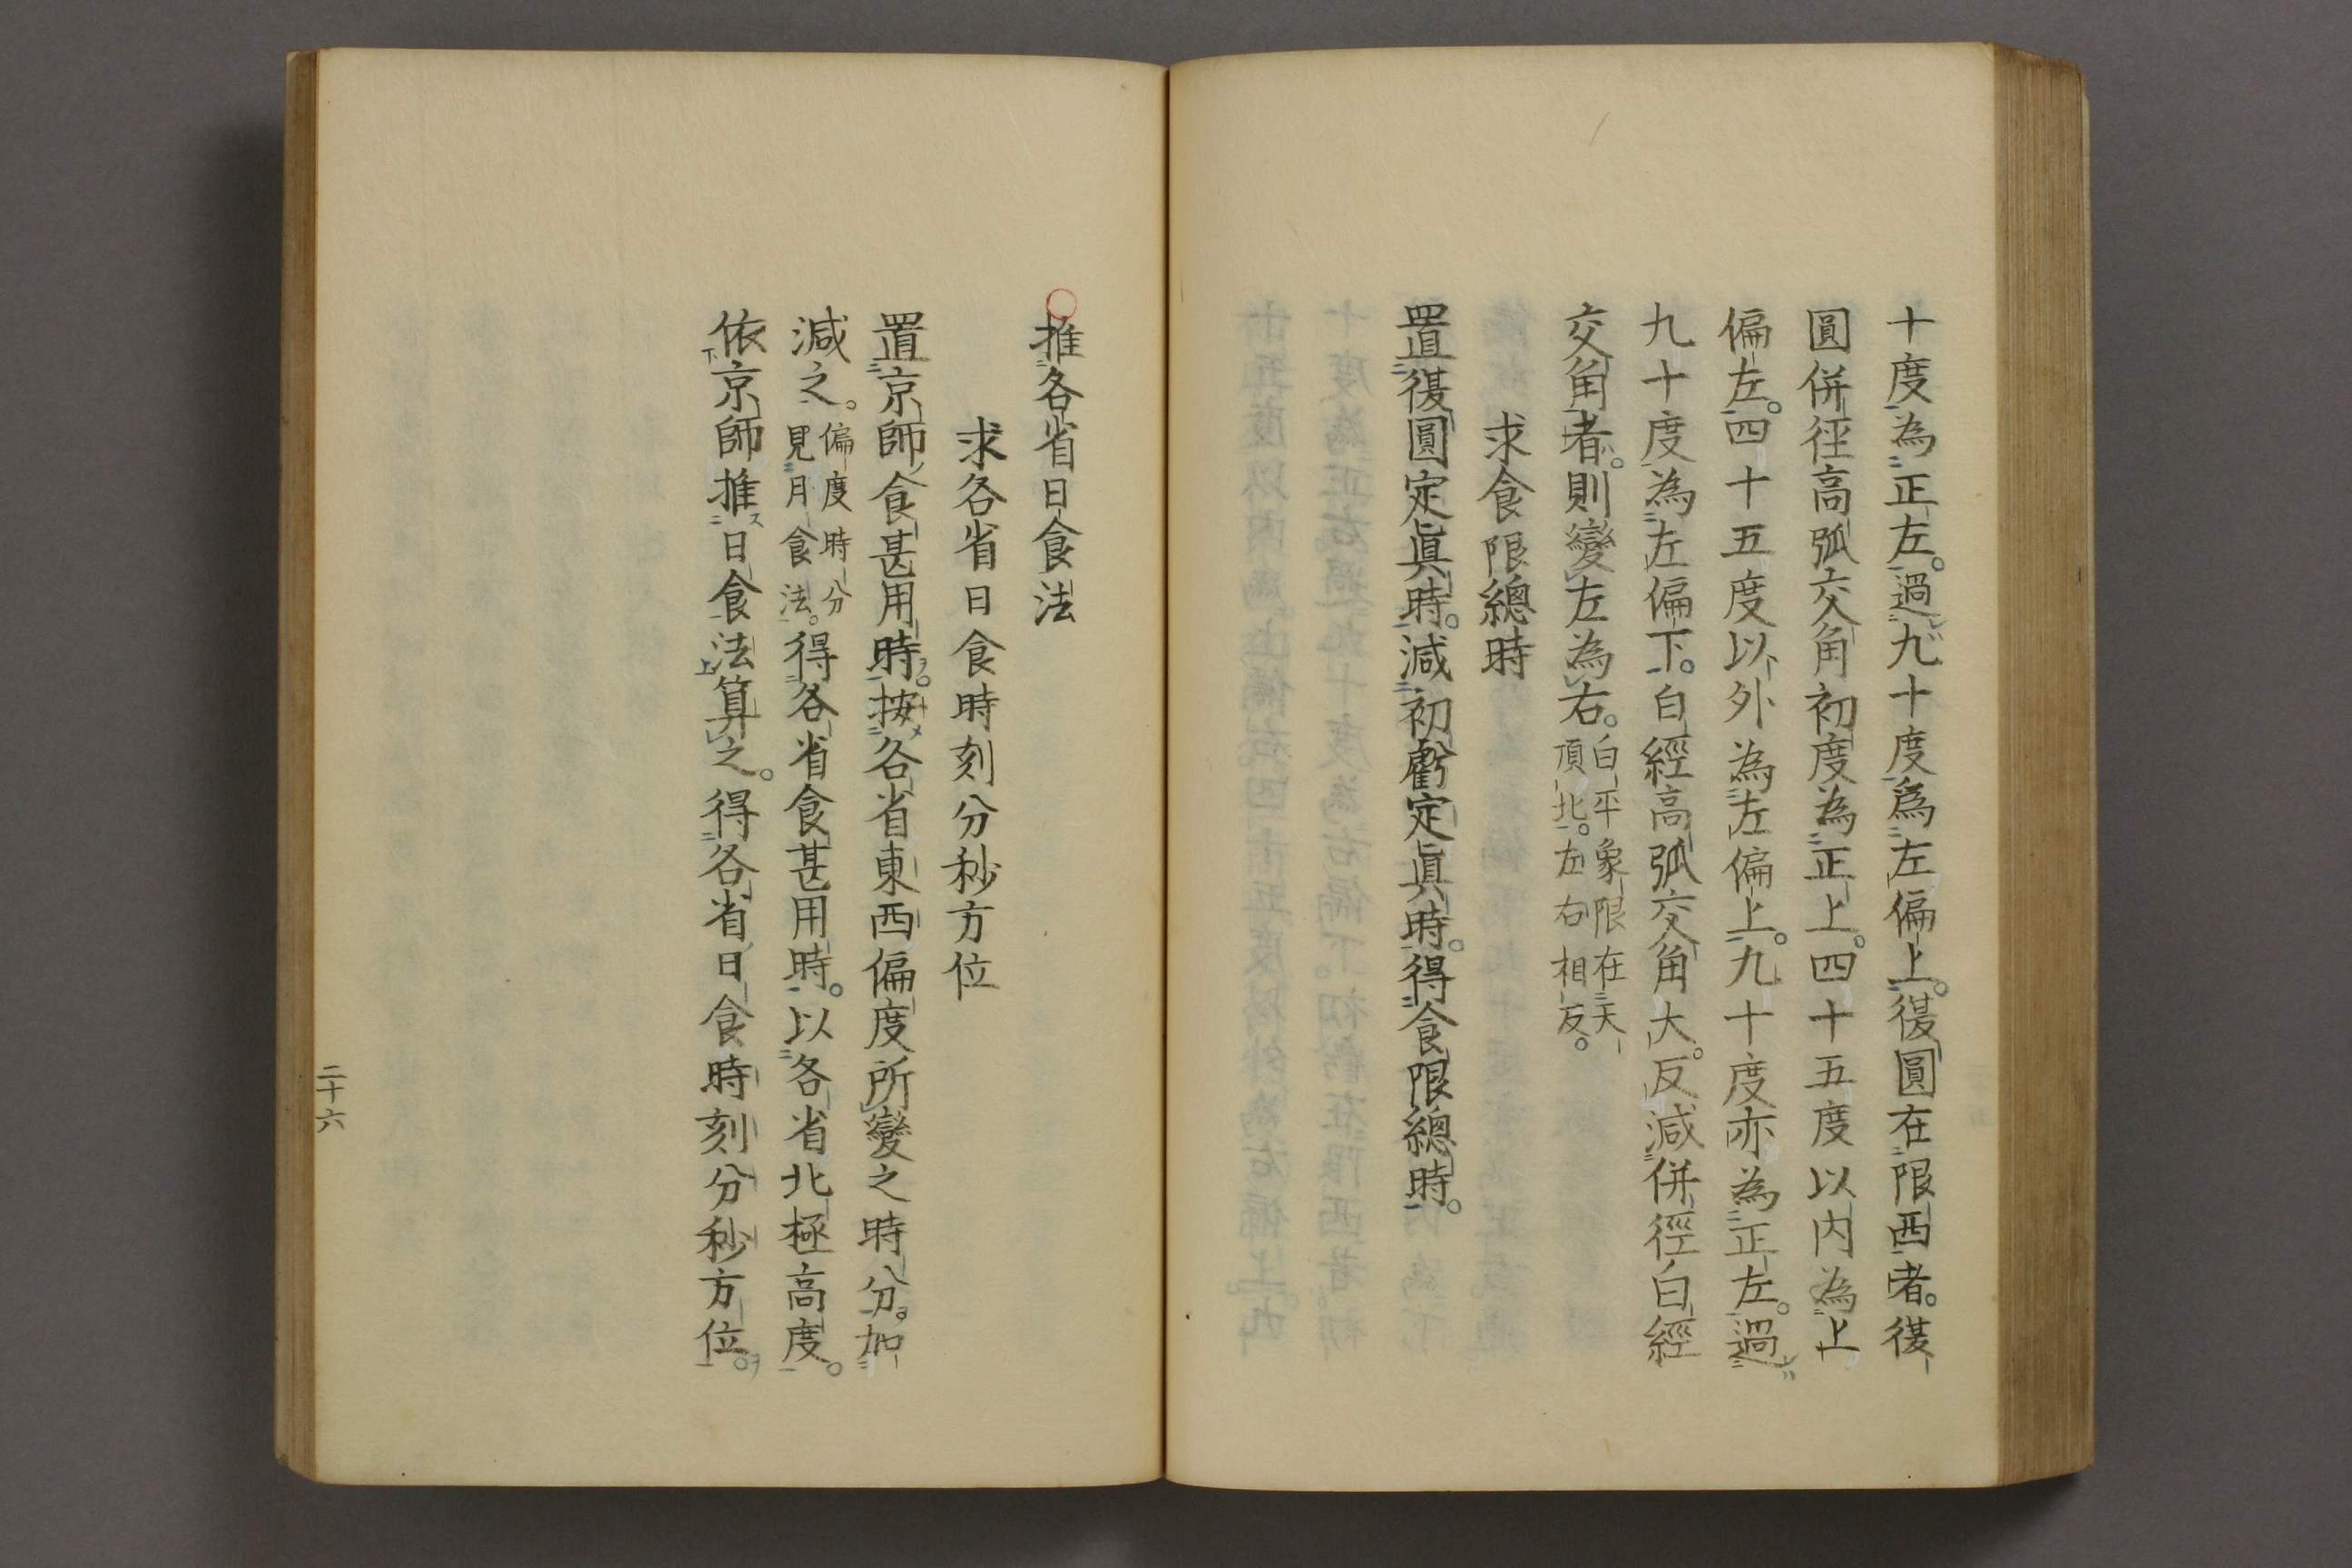 十度為正左。過九十度為左偏上。復圓在限西者。復
圓併徑高弧交角初度為正上。四十五度以内為上
偏左。四十五度以外為左偏上。九十度亦為正左。過
九十度為左偏下。白經高弧交角大。反減併徑白經
交角者。則變左為右。白平象限在天
頂北。左右相反。
求食限總時
置復圓定眞時。減初虧定眞時。得食限總時。
推各省日食法
求各省日食時刻分秒方位
置京師食甚用時。按各省東西偏度所變之時分。加
減之。偏度時分
見月食法。得各省食甚用時。以各省北極高度。
依京師推日食法算之。得各省日食時刻分秒方位。
二十六